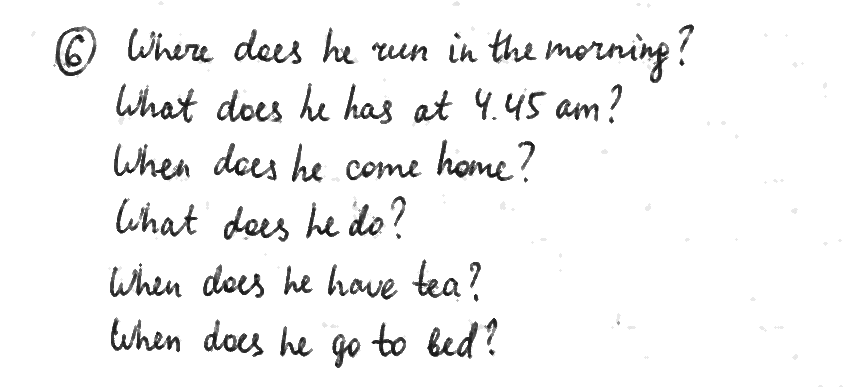 ⑥ Where does he run in the morning?
What does he has at 4.45 am?
When does he come home?
What does he do?
When does he have tea?
When does he go to bed?